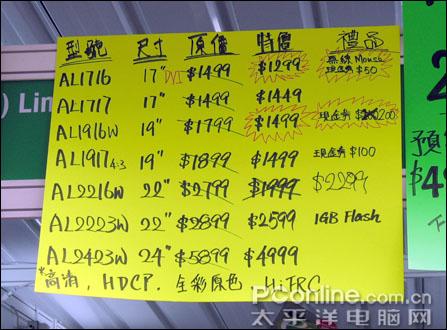 型號 尺寸 原價 特價 禮品
AL1716 17" $1499 $1299 無線 Mouse
現金券 $50
AL1717 17" $1499 $1449
AL1916W 19" $1799 $1499 現金券 $200
AL1917 4:3 19" $1899 $1499 現金券 $100
AL2216W 22" $2799 $1999 $2299
AL2223W 22" $2899 $2599 1GB Flash
AL2423W 24" $5899 $4999
*高清, HDCP. 全彩原色. HiTRC
) Lin
PConline.com.cn
太平洋电脑网